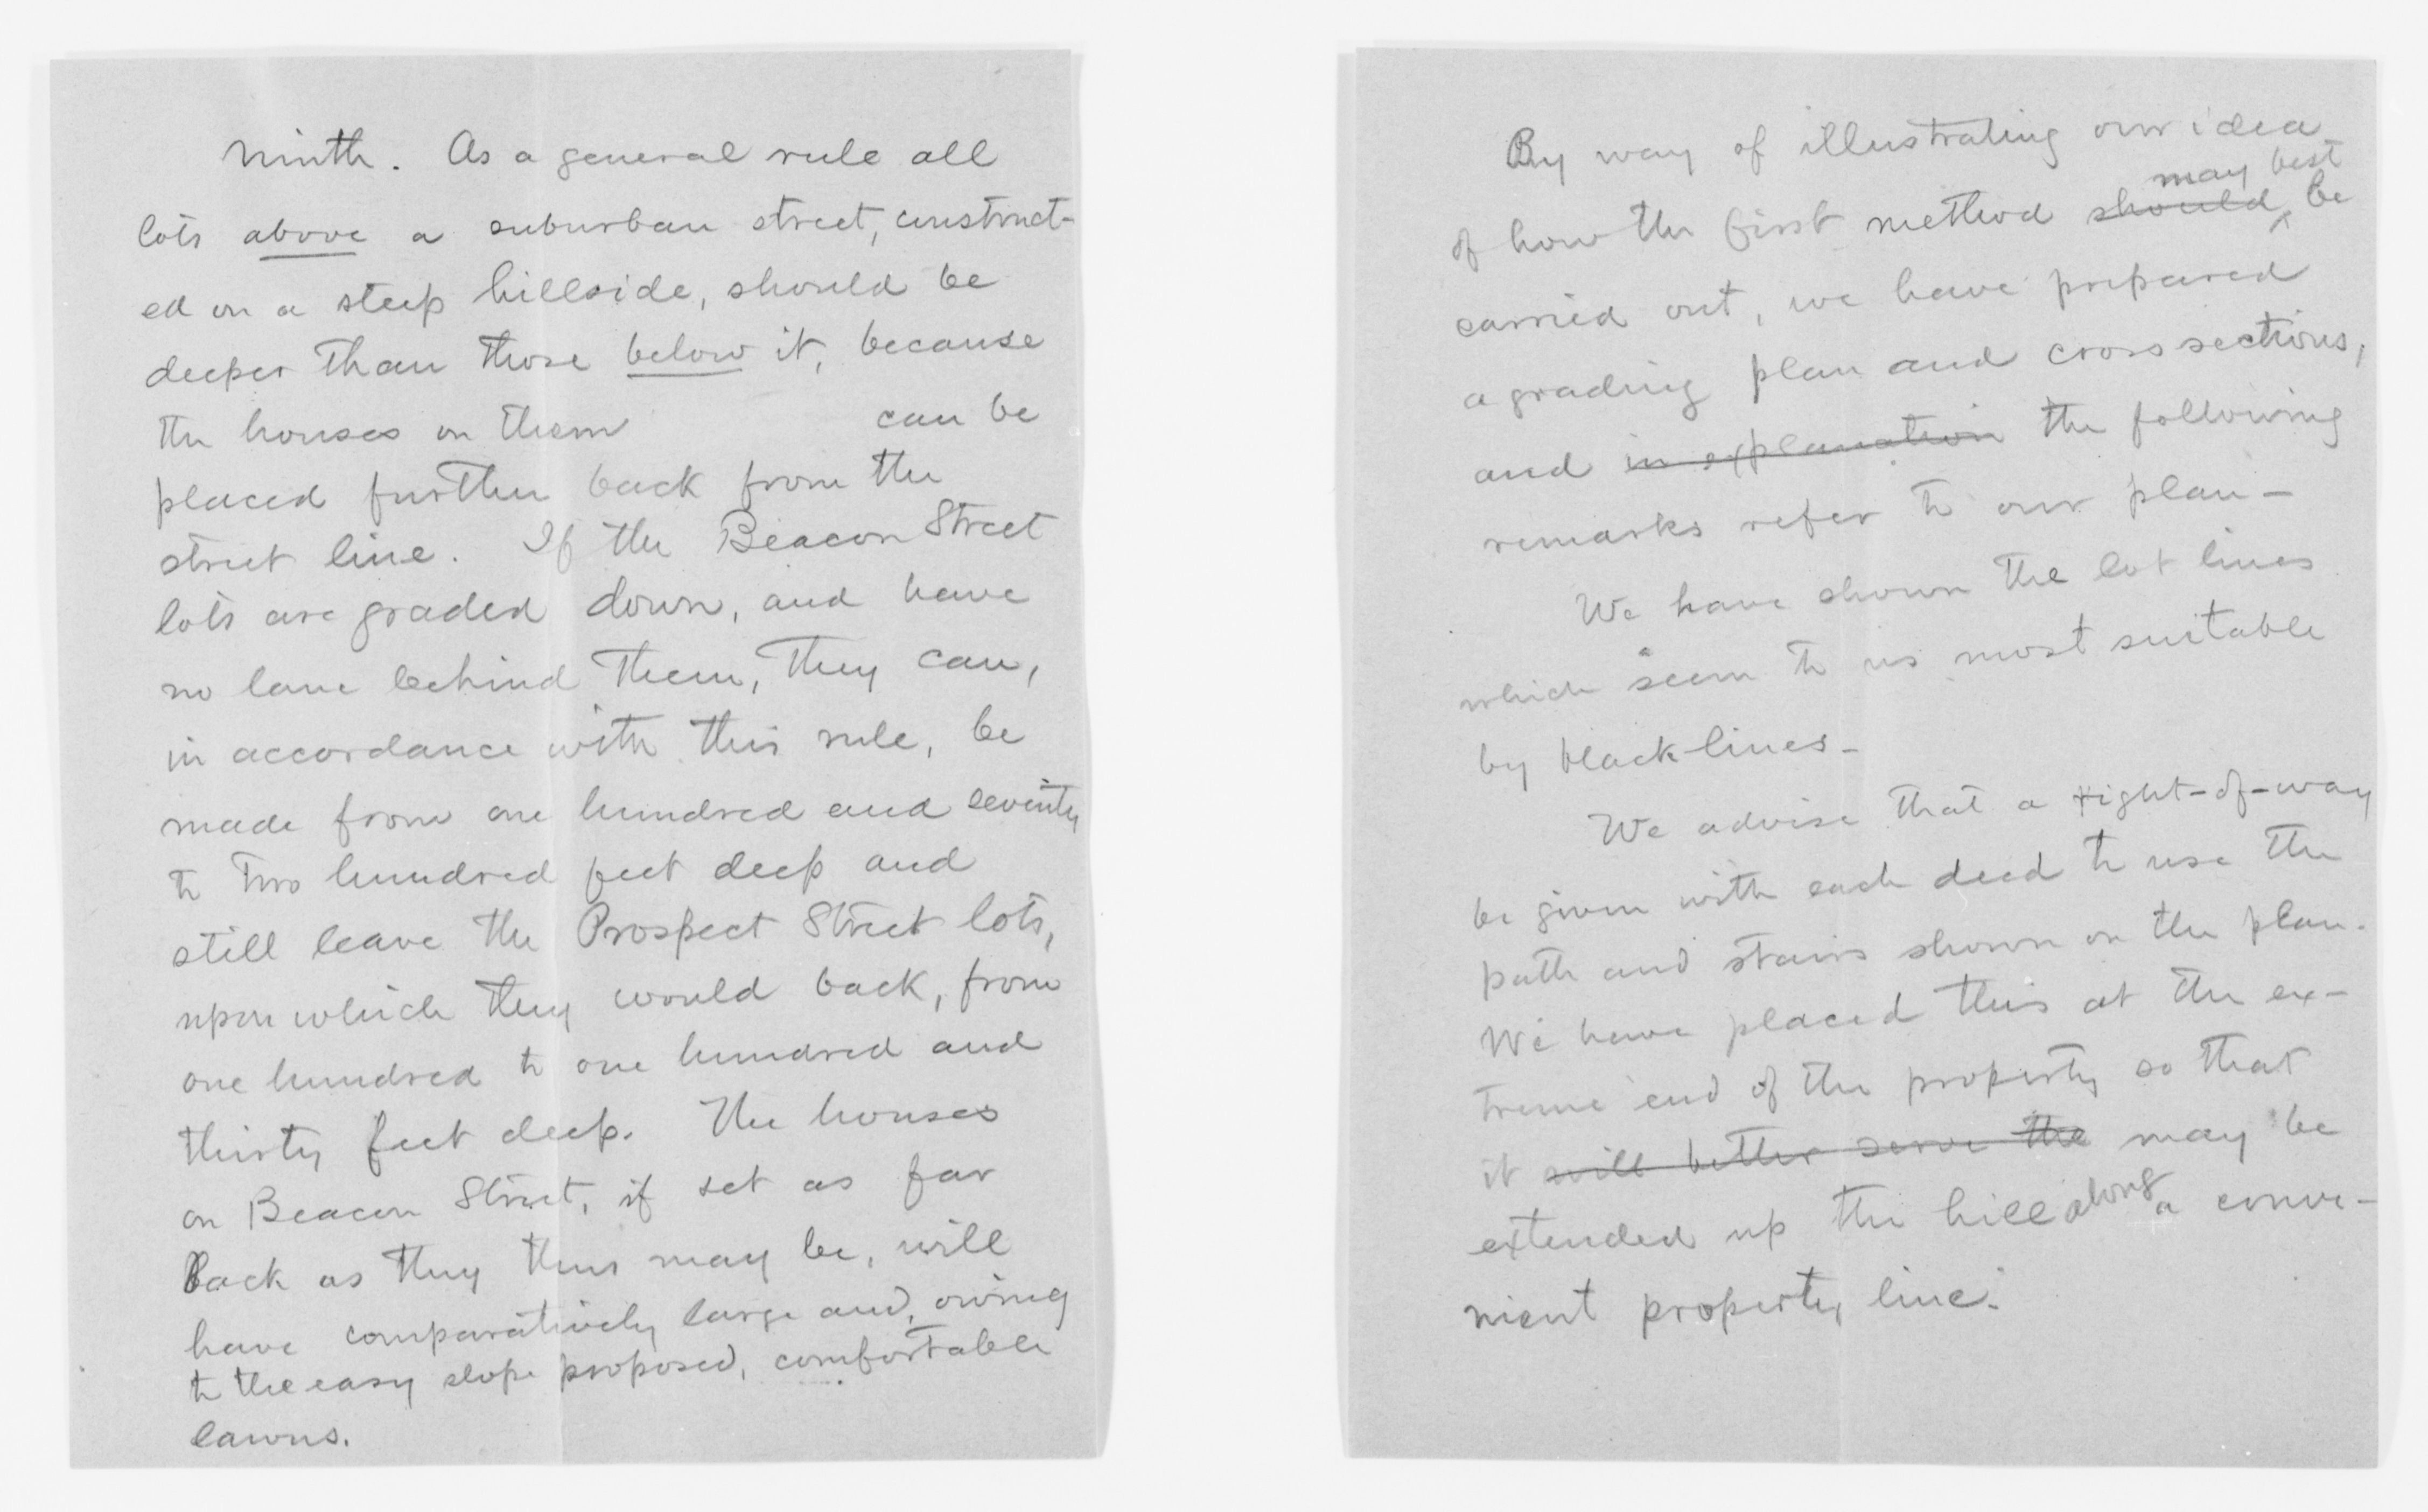 Ninth. As a general rule all
lots above a suburban street, construct-
ed on a steep hillside, should be
deeper than those below it, because
the houses on them can be
placed further back from the
street line. If the Beacon Street
lots are graded down, and have
no lane behind them, they can,
in accordance with this rule, be
made from one hundred and seventy
to two hundred feet deep and
still leave the Prospect Street lots,
upon which they would back, from
one hundred to one hundred and
thirty feet deep. The houses
on Beacon Street, if set as far
back as they thus may be, will
have comparatively large and, owing
to the easy slope proposed, comfortable
lawns.
By way of illustrating our idea
may best
of how the first method should be
carried out, we have prepared
a grading plan and cross sections,
and in explanation the following
remarks refer to our plan-
We have shown the lot lines
which seem to us most suitable
by black lines-
We advise that a right-of-way
be given with each deed to use the
path and stairs shown on the plan.
We have placed this at the ex-
treme end of the property so that
it will better serve the may be
extended up the hill along a conve-
nient property line.